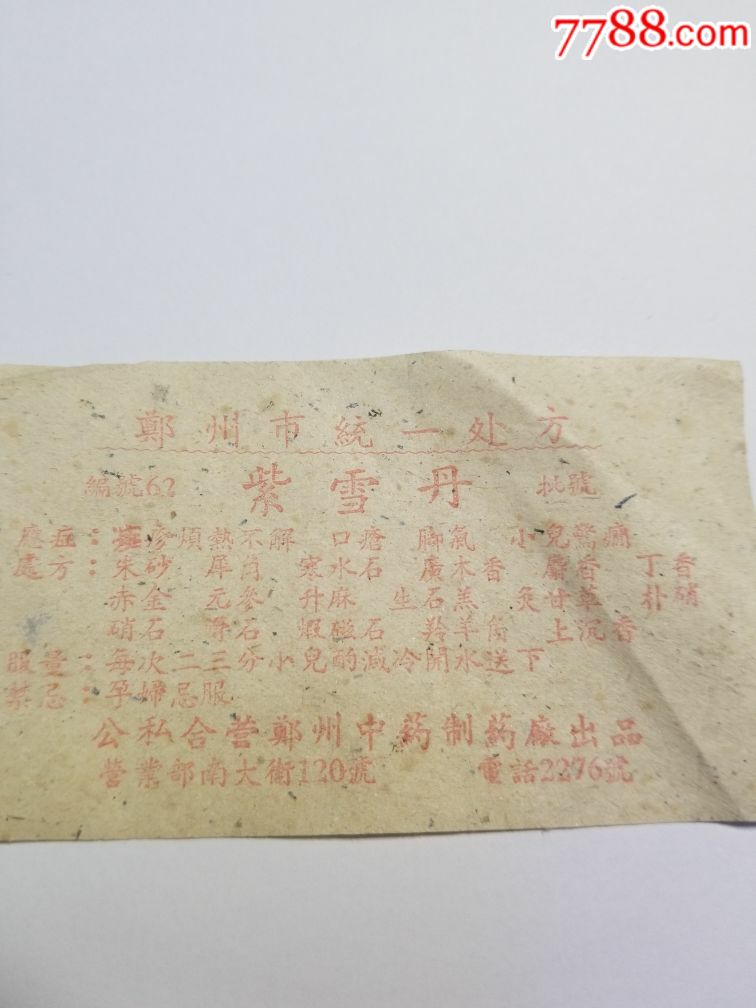 7788.com
鄭州市統一处方
編號62 紫雪丹 批號
應症：斑疹煩熱不解 口瘡 脚氣 小兒驚癎
處方：朱砂 犀角 寒水石 廣木香 麝香 丁香
赤金 元參 升麻 生石羔 炙甘草 朴硝
硝石 滑石 煅磁石 羚羊角 上沉香
服量：每次二三分小兒酌減冷開水送下
禁忌：孕婦忌服
公私合营鄭州中药制药廠出品
营業部南大街120號 電話2276號